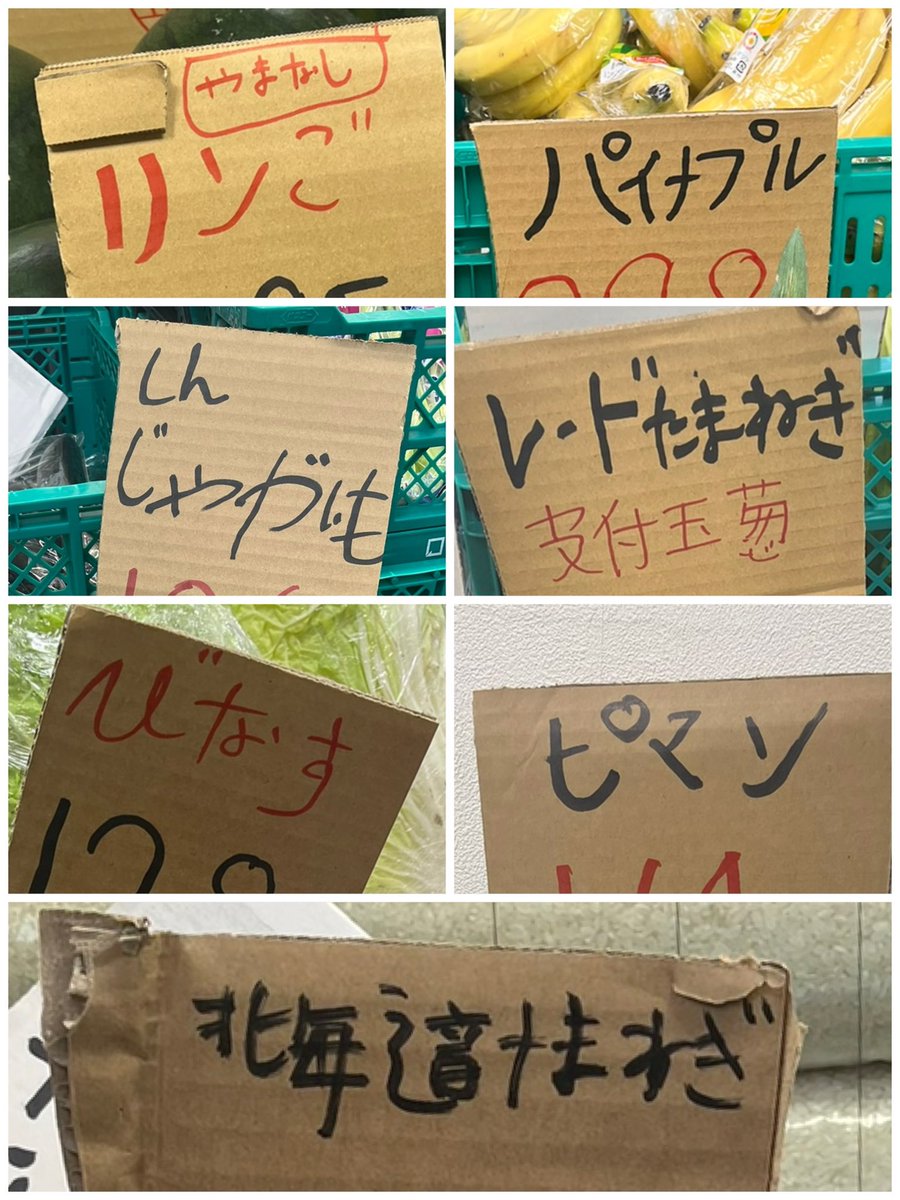 やまなし
リンご
パイナプル
しん
じゃがいも
レードたまねぎ
皮付玉葱
びなす
ピマン
北海道たまねぎ